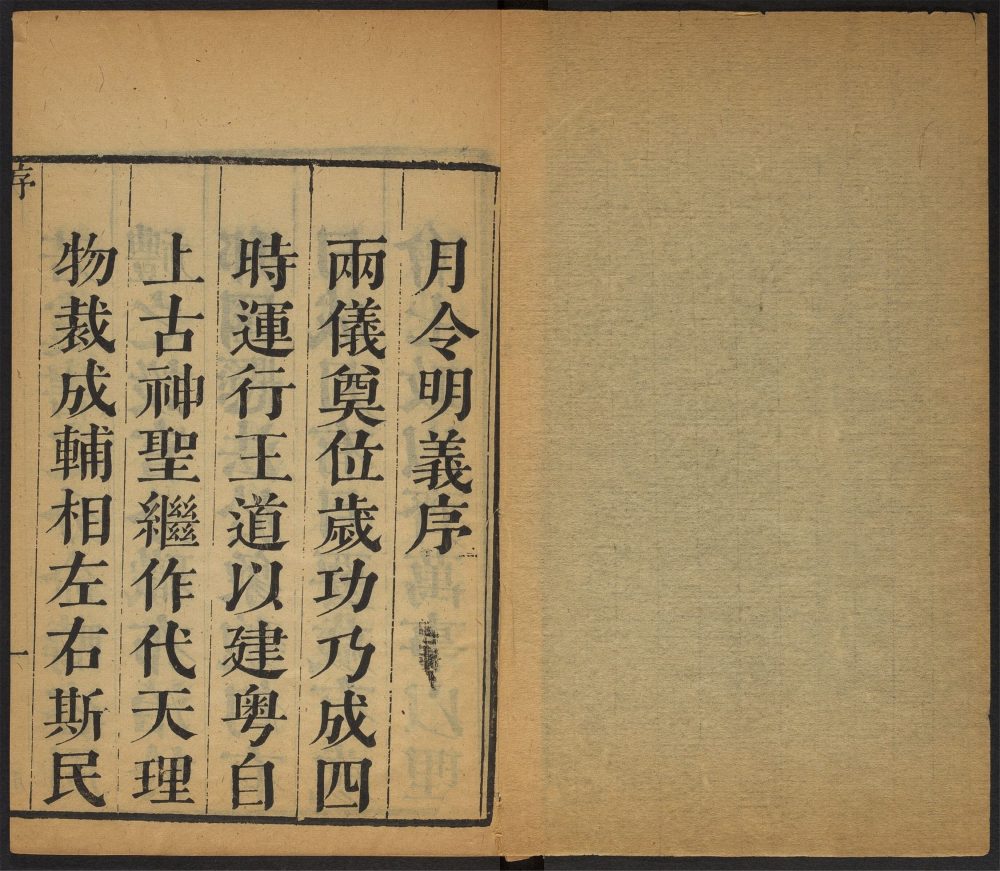 月令明義序
兩儀奠位歲功乃成四
時運行王道以建粤自
上古神聖繼作代天理
物裁成輔相左右斯民
序
一